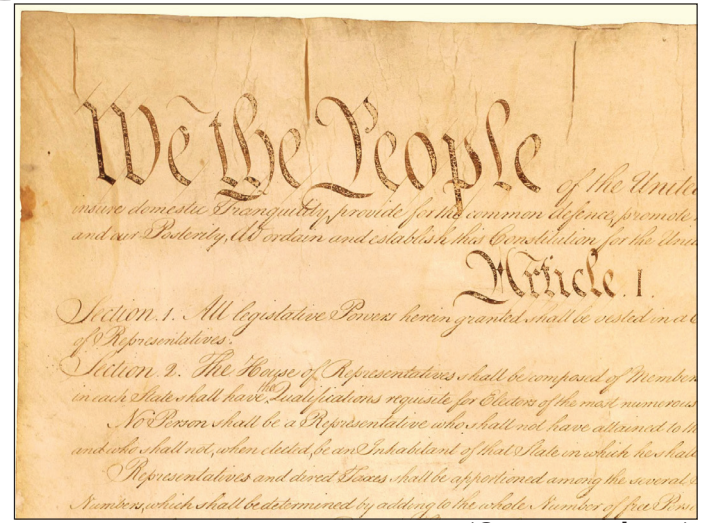 We the People of the United
insure domestic Tranquility, provide for the common defence, promote
and our Posterity, do ordain and establish this Constitution for the Unit
Article. I.
Section. 1. All legislative Powers herein granted shall be vested in a C
of Representatives.
Section. 2. The House of Representatives shall be composed of Member
in each State shall have the Qualifications requisite for Electors of the most numerous
No Person shall be a Representative who shall not have attained to th
and who shall not, when elected, be an Inhabitant of that State in which he shall
Representatives and direct Taxes shall be apportioned among the several
Numbers, which shall be determined by adding to the whole Number of free Perso